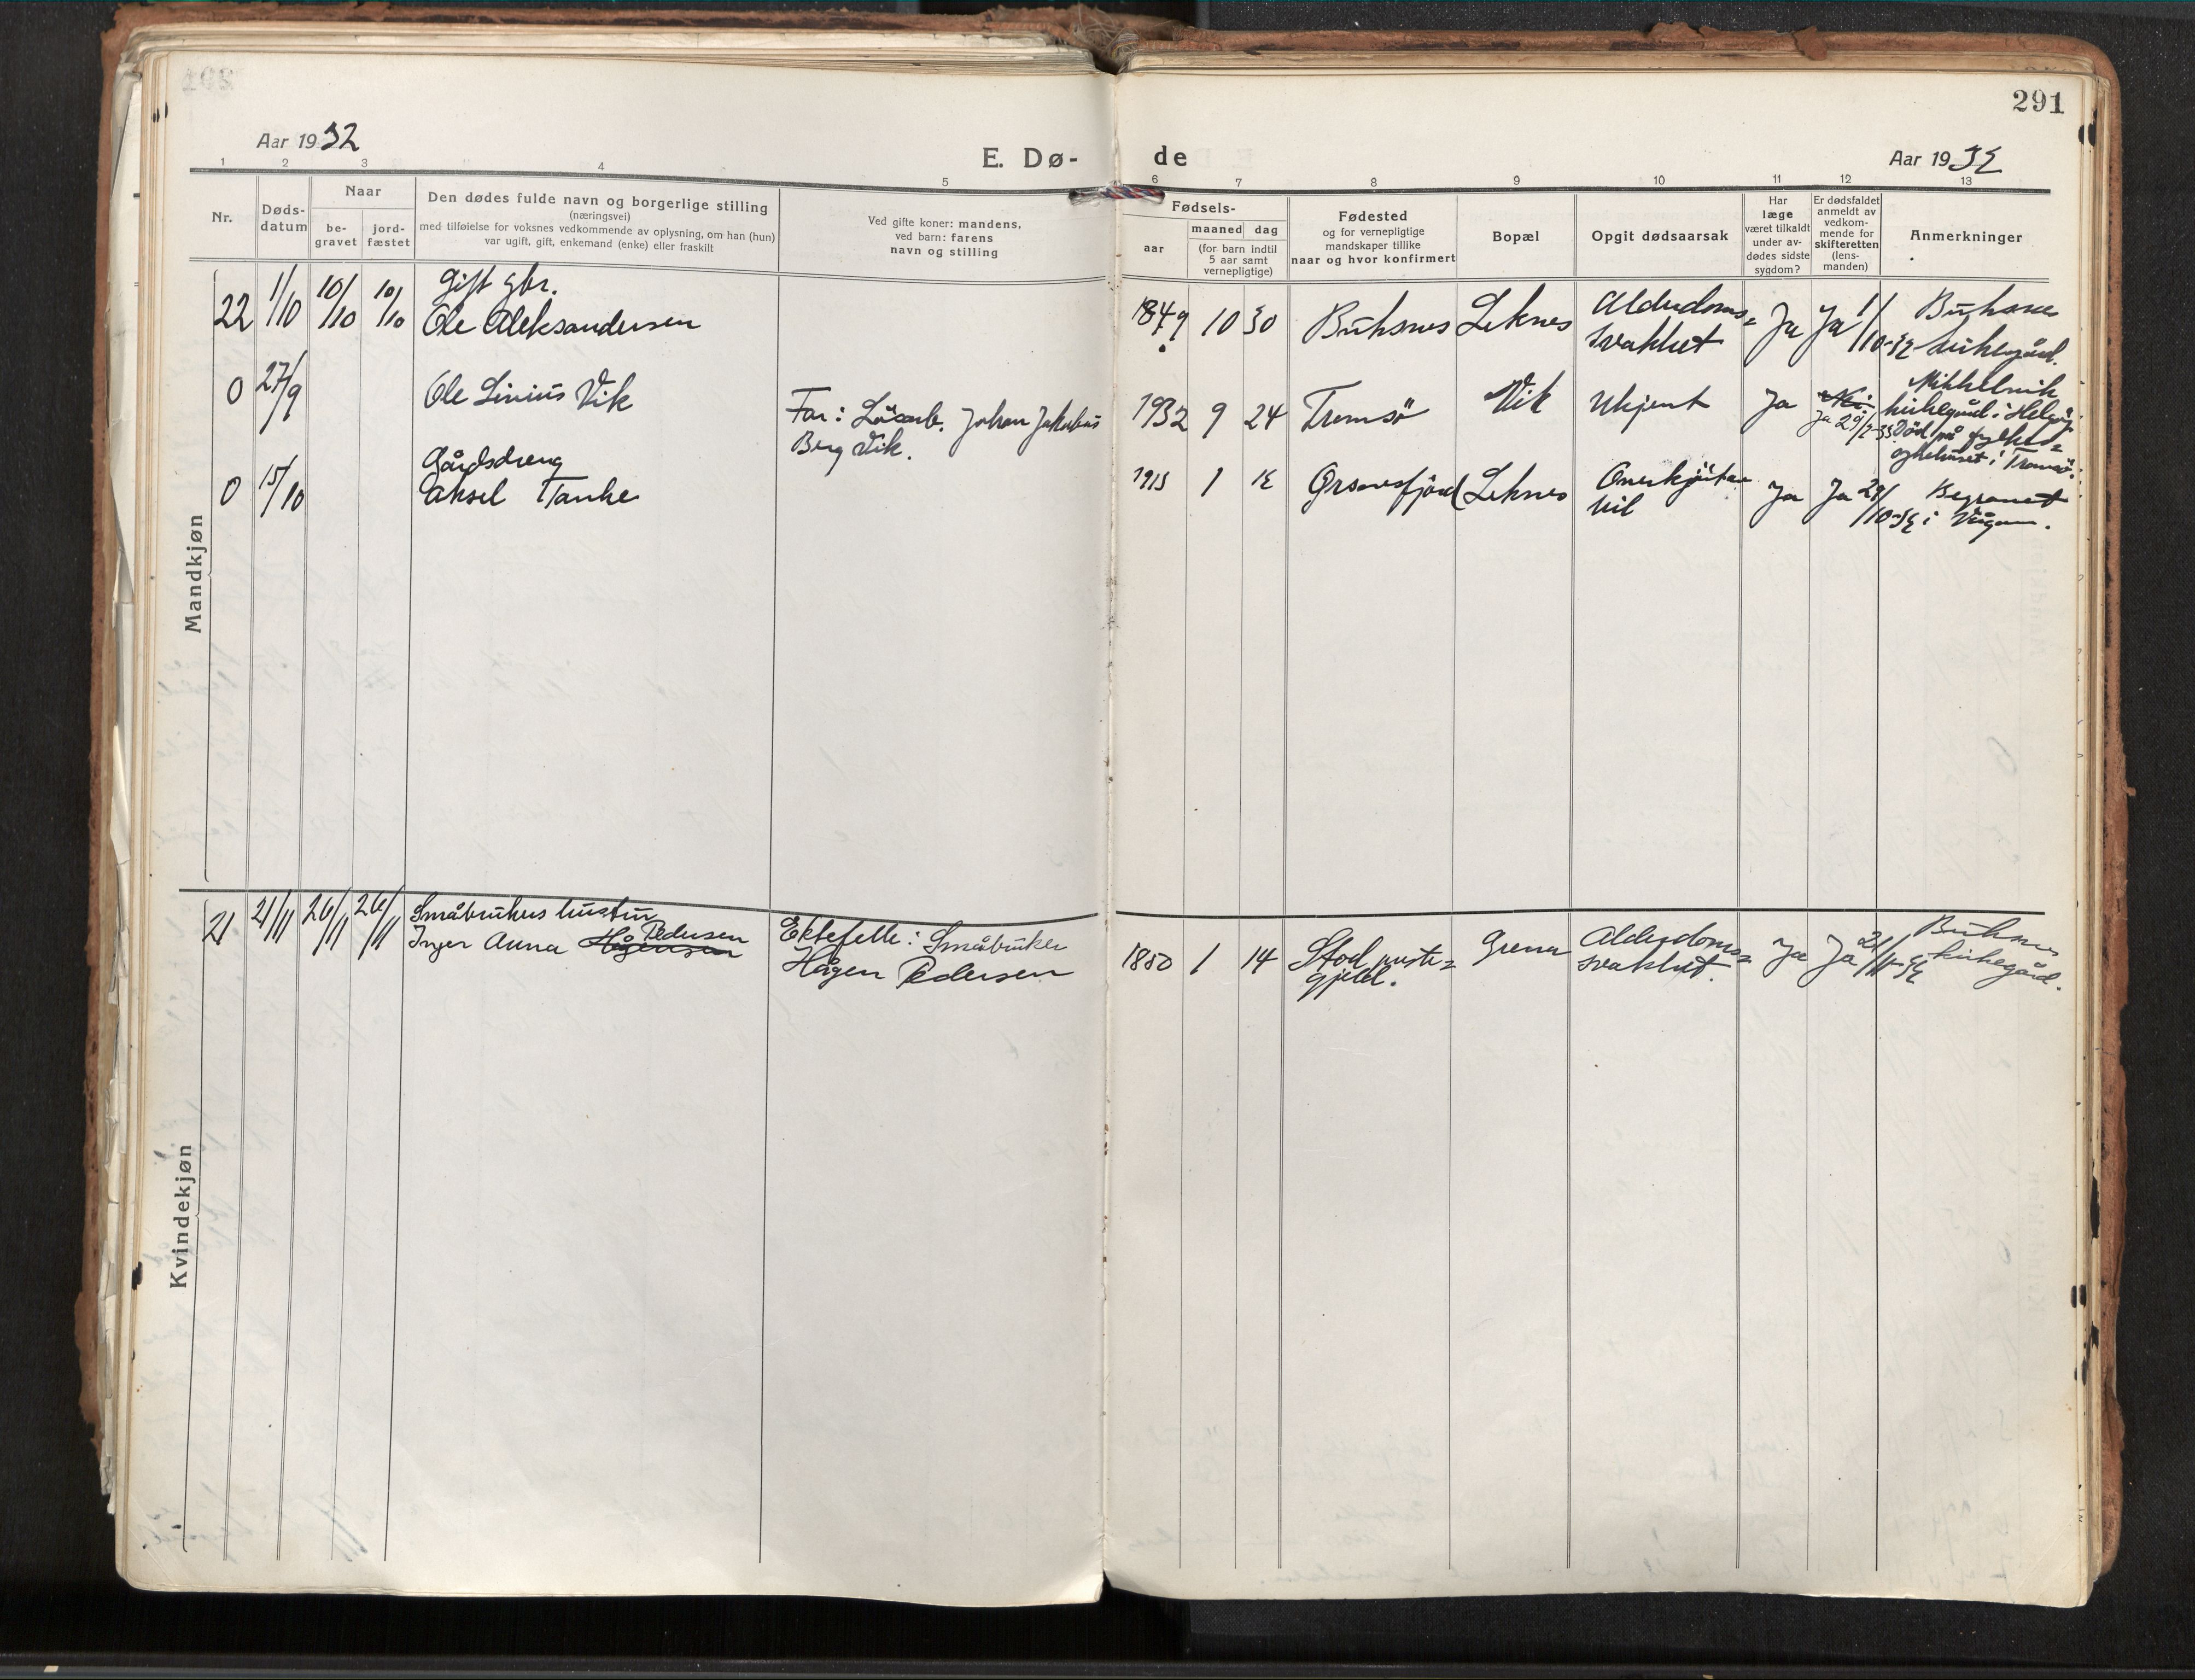 291
Aar 1932
E. Dø-
de
Aar 1932
1 2 3 4 5 6 7 8 9 10 11 12 13
Nr.
Døds-
datum
Naar
be-
gravet
jord-
fæstet
Den dødes fulde navn og borgerlige stilling
(næringsvei)
med tilføielse for voksnes vedkommende av oplysning, om han (hun)
var ugift, gift, enkemand (enke) eller fraskilt
Ved gifte koner: mandens,
ved barn: farens
navn og stilling
Fødsels-
aar
maaned dag
(for barn indtil
5 aar samt
vernepligtige)
Fødested
og for vernepligtige
mandskaper tillike
naar og hvor konfirmert
Bopæl
Opgit dødsaarsak
Har
læge
været tilkaldt
under av-
dødes sidste
sygdom?
Er dødsfaldet
anmeldt av
vedkom-
mende for
skifteretten
(lens-
manden)
Anmerkninger
Mandkjøn
22 1/10 10/10 10/10
Gift gbr.
Ole Aleksandersen
1849 10 30 Buksnes Leknes
Alderdoms=
svakhet
Ja Ja 1/10-32
Buksnes
kirkegård.
0 27/9
Ole Linius Vik
Far: Løsarb. Johan Jakobus
Berg Vik.
1932 9 24 Tromsø Vik Ukjent Ja Nei
Ja 29/7-33
Mikkelvik
kirkegård i Helgøy
Død på fylkes=
sykehuset i Tromsø.
0 15/10
Gårdsdreng
Aksel Tanke
1915 1 12 Ørsnesfjord Leknes
Overkjørt av
bil
Ja Ja 29/10-32
Begravet
i Vågan.
Kvindekjøn
21 21/11 26/11 26/11
Småbrukers hustru
Pedersen
Inger Anna Hågensen
Ektefelle: Småbruker
Hågen Pedersen
1850 1 14
Stod preste=
gjeld.
Grena
Alderdoms=
svakhet.
Ja Ja 21/11-32
Buksnes
kirkegård.